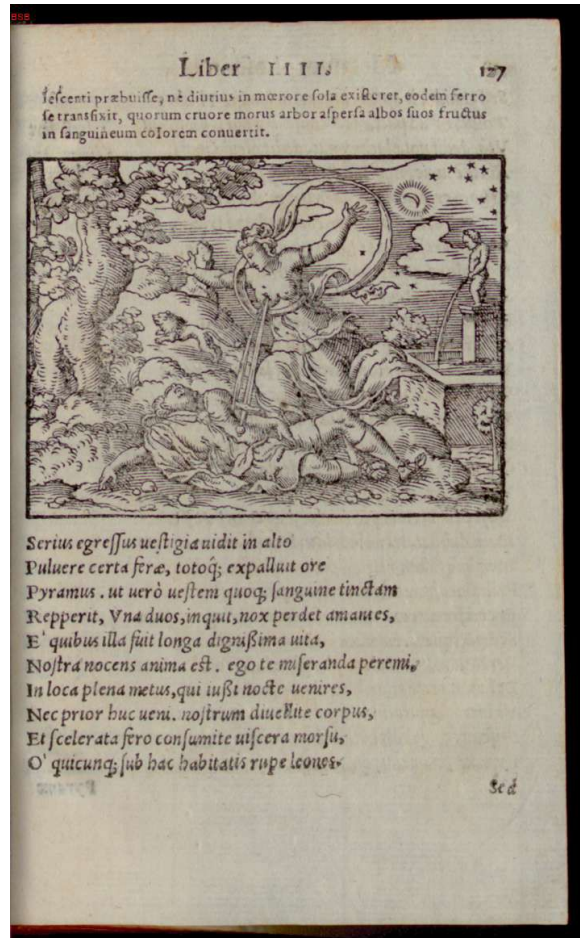 898
Liber IIII. 127
ſeſcenti præbuiſſe, nè diutius in mœrore ſola exiſteret, eodem ferro
ſe transfixit, quorum cruore morus arbor aſperſa albos ſuos fructus
in ſanguineum colorem conuertit.
Serius egreſſus ueſtigia uidit in alto
Puluere certa feræ, totoq; expalluit ore
Pyramus. ut uerò ueſtem quoq; ſanguine tinctam
Repperit, Vna duos, inquit, nox perdet amantes,
E' quibus illa fuit longa digniſſima uita,
Noſtra nocens anima eſt. ego te miſeranda peremi,
In loca plena metus, qui iuſſi nocte uenires,
Nec prior huc ueni. noſtrum diuellite corpus,
Et ſcelerata fero conſumite uiſcera morſu,
O' quicunq; ſub hac habitatis rupe leones.
Sed